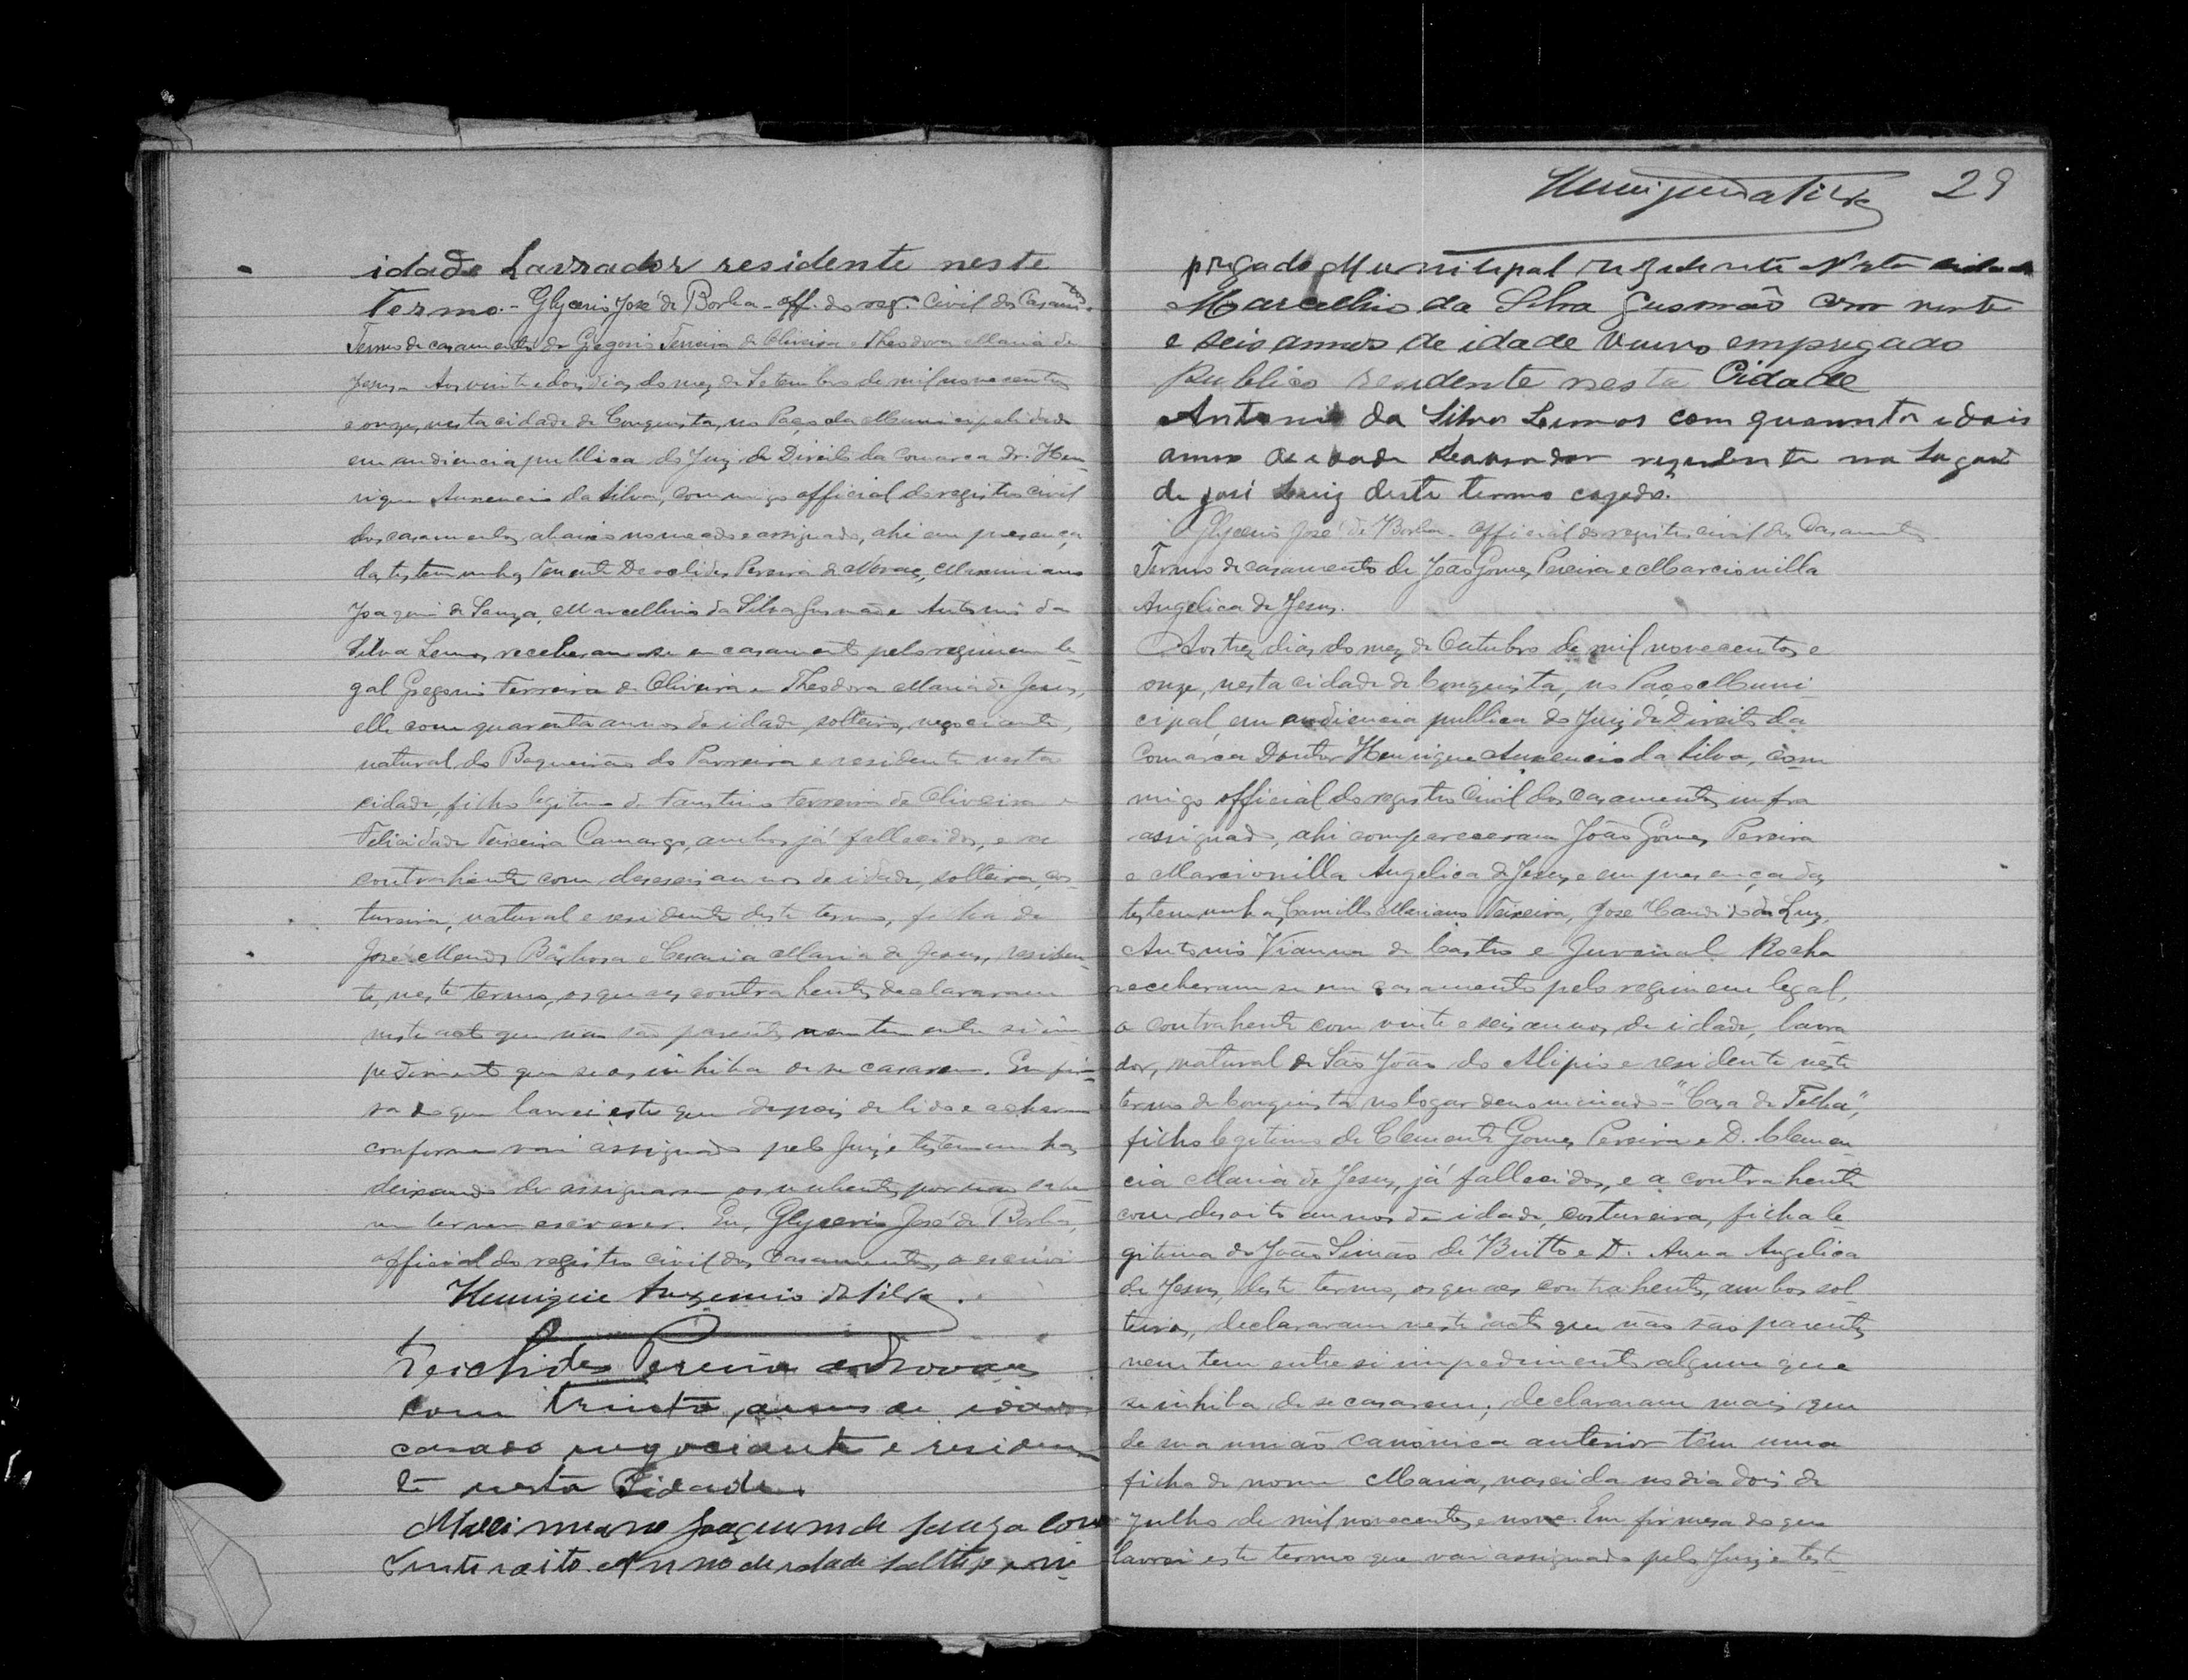 idade Lavrador residente neste
Termo.- Glycerio José de Borba - off. do reg. Civil dos Casamtos.
Termo de casamento de Gregorio Ferreira de Oliveira e Theodora Maria de
Jesus. Aos vinte e dois dias do mez de Setembro de mil novecentos
e onze, nesta cidade de Conquista, no Paço da Municipalidade
em audiencia publica do Juiz de Direito da Comarca Dr. Hen-
rique Auxencio da Silva, commigo official do registro civil
dos casamentos abaixo nomeado e assignado, ahi em presença
das testemunhas Tenente Deoclides Pereira de Novaes, Maximiano
Joaquim de Souza, Marcellino da Silva Gusmão e Antonio da
Silva Lemos, receberam-se em casamento pelo regimen le-
gal Gregorio Ferreira de Oliveira e Theodora Maria de Jesus,
elle com quarenta annos de idade, solteiro, negociante,
natural do Boqueirão do Parreira e residente nesta
cidade, filho legitimo de Faustino Ferreira de Oliveira e
Felicidade Teixeira Camargo, ambos já fallecidos, e a
contrahente com deseseis annos de idade, solteira, cos-
tureira, natural e residente deste termo, filha de
José Mendes Barbosa e Maria de Jesus, residen-
te, neste termo, os quaes contrahentes declararam
neste acto que não são parentes nem tem entre si im-
pedimento que se os inhiba de se casarem. Em fir-
sa do que lavrei este que depois de lido e acharem
conforme vai assignado pelo Juiz e testemunhas
deixando de assignarem os nubentes por não sabe-
rem ler nem escrever. Eu, Glycerio José de Borba,
official do registro civil dos casamentos, o escrevi
Henrique Auxencio da Silva.
Deoclides Pereira de Novaes
com trinta annos de idade
casado negociante e residen
te nesta Cidade.
Maximiano Joaquim de Souza com
vinte e oito Annos de idade solteiro em-
Henrique da Silva 29
pregado Municipal rezidente Nesta cidade
Marcellino da Silva Gusmão com vinte
e seis annos de idade Viuvo empregado
Publico residente nesta Cidade
Antonio da Silva Lemos com quarenta e dois
annos de idade Lavrador rezidente no Lugar
de José Luiz deste termo cazado.
Glycerio José de Borba. Official do registro civil dos Casamentos.
Termo de casamento de João Gomes Pereira e Marcionilla
Angelica de Jesus.
Aos trez dias do mez de Outubro de mil novecentos e
onze, nesta cidade de Conquista, no Paço Muni-
cipal, em audiencia publica do Juiz de Direito da
Comarca Doutor Henrique Auxencio da Silva, com
migo official do registro Civil dos casamentos infra
assignado, ahi compareceram João Gomes Pereira
e Marcionilla Angelica de Jesus e em presença das
testemunhas, Camillo Mariano Teixeira, José Candido da Luz,
Antonio Vianna de Castro e Juvenal Rocha
receberam-se em casamento pelo regimem legal,
o contrahente com vinte e seis annos de idade, lavra
dor, natural de São João do Alipio e residente neste
termo de Conquista no logar denominado - "Casa de Telha",
filho legitimo de Clemente Gomes Pereira e D. Clemen
cia Maria de Jesus, já fallecidos, e a contrahente
com desoito annos de idade, costureira, filha le
gitima de João Simão de Britto e D. Anna Angelica
de Jesus, deste termo, os quaes contrahentes, ambos sol
teiros, declararam neste acto que não são parentes
nem tem entre si impedimento algum que
se inhiba de se casarem; declararam mais que
de sua união canonica anterior têm uma
filha de nome Maria, nascida no dia dois de
Julho de mil novecentos e nove. Em firmesa do que
lavrei este termo que vai assignado pelo Juiz e teste-